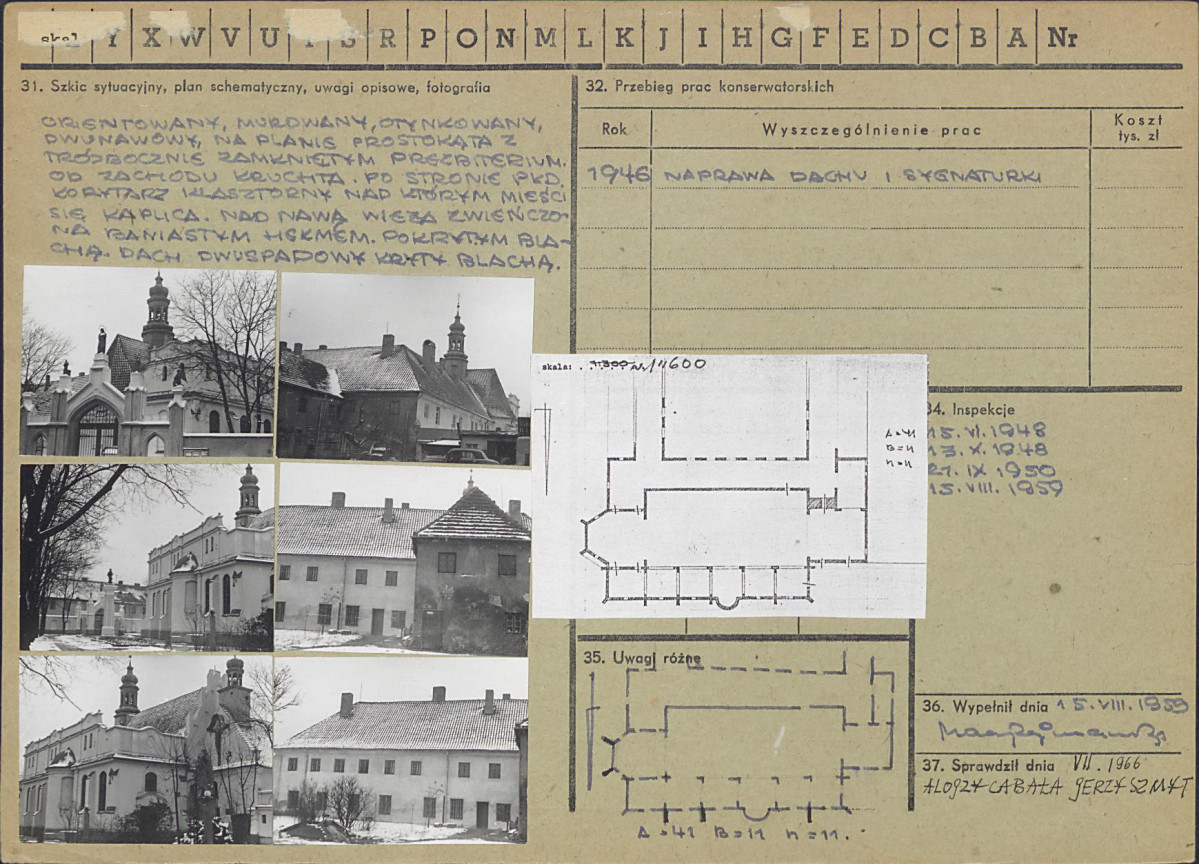 skal
Y X W V U T S R P O N M L K J I H G F E D C B A Nr
31. Szkic sytuacyjny, plan schematyczny, uwagi opisowe, fotografia
ORIENTOWANY, MUROWANY, OTYNKOWANY,
DWUNAWOWY, NA PLANIE PROSTOKĄTA Z
TRÓJBOCZNIE ZAMKNIĘTYM PREZBITERIUM.
OD ZACHODU KRUCHTA. PO STRONIE PŁD.
KORYTARZ KLASZTORNY NAD KTÓRYM MIEŚCI
SIĘ KAPLICA. NAD NAWĄ WIEŻA ZWIEŃCZO-
NA BANIASTYM HEŁMEM. POKRYTYM BLA-
CHĄ. DACH DWUSPADOWY KRYTY BLACHĄ.
32. Przebieg prac konserwatorskich
Rok Wyszczególnienie prac Koszt
tys. zł
1946 NAPRAWA DACHU I SYGNATURKI
skala: 1:600
A = 41
B = 11
h = 11
34. Inspekcje
15. VI. 1948
13. X. 1948
21. IX 1950
15. VIII. 1959
35. Uwagi różne
A = 41 B = 11 h = 11.
36. Wypełnił dnia 15. VIII. 1959
37. Sprawdził dnia VII. 1966
ALOJZY CABAŁA JERZY SZMYT